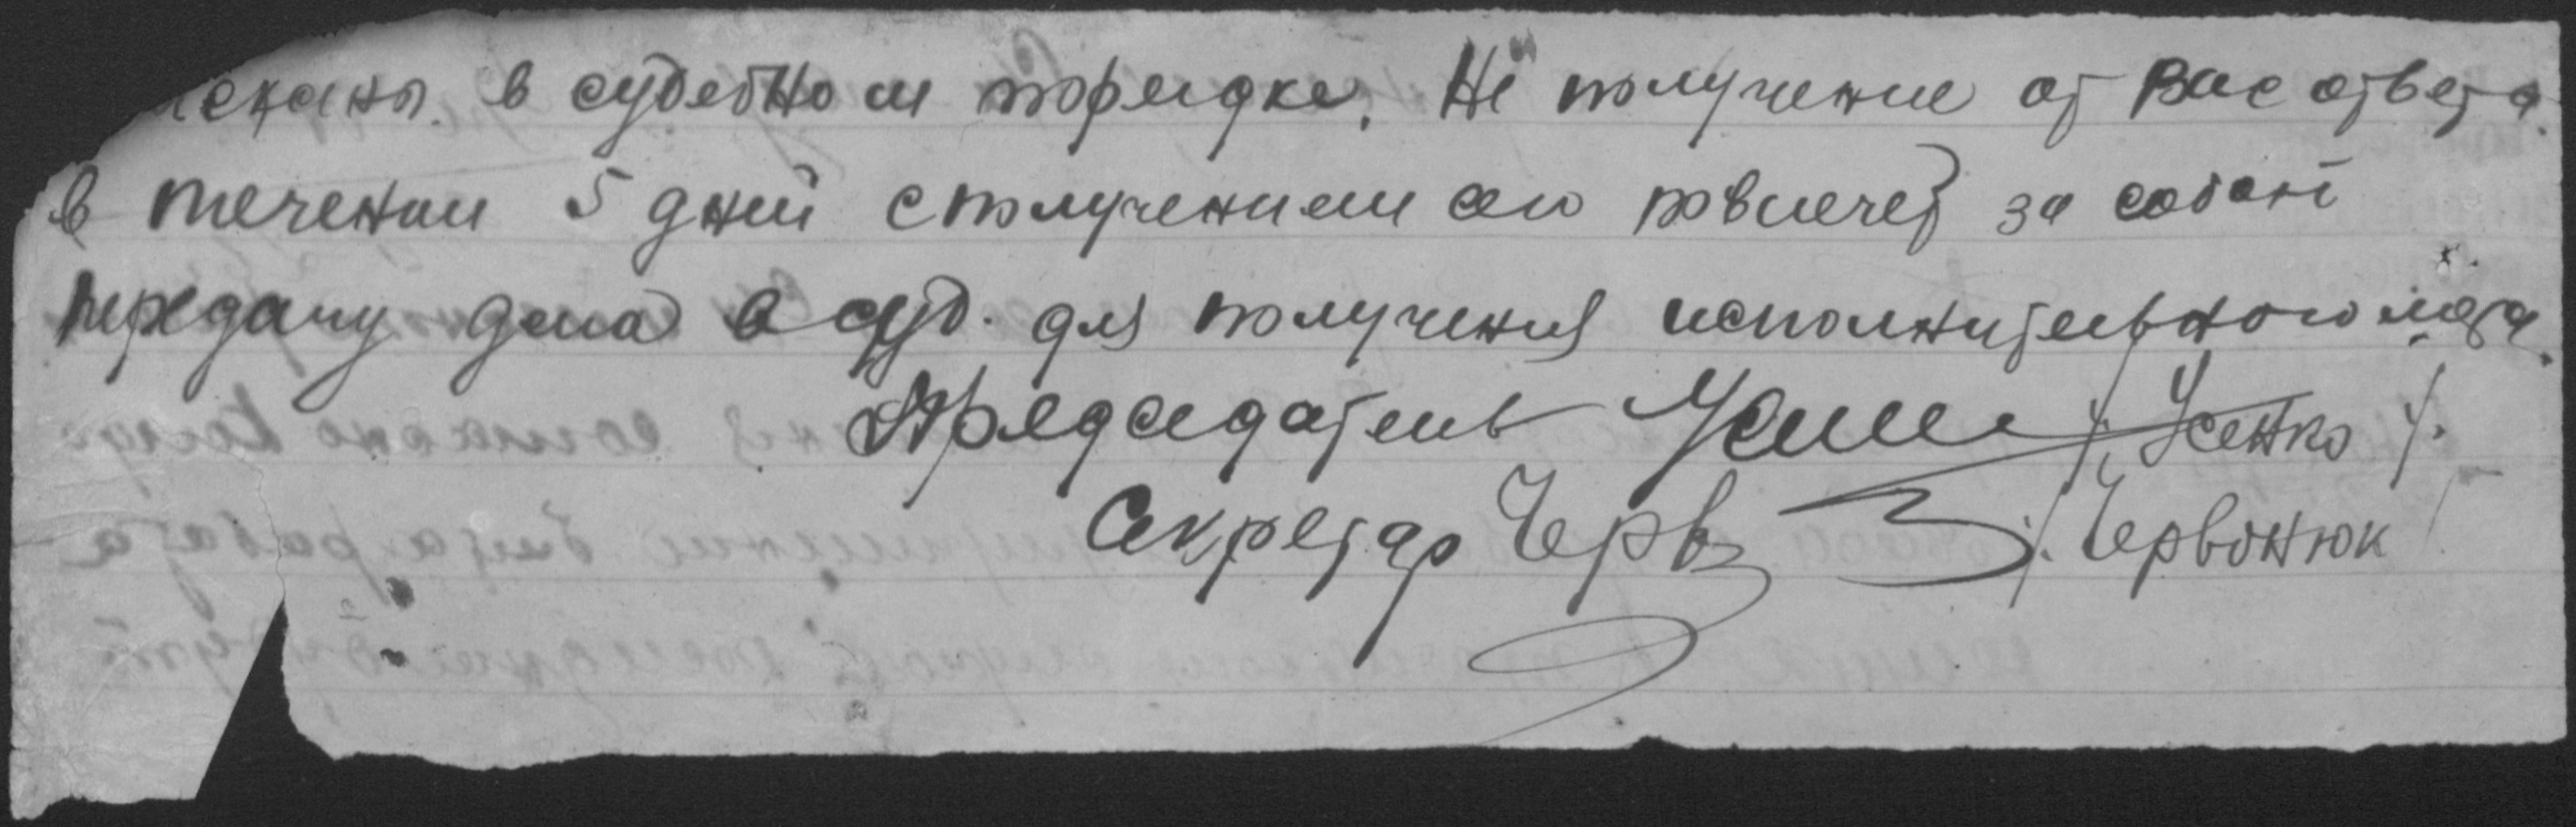 искани в судебном порядке. Не получение от Вас ответа
в течении 5 дней с получением сего повлечет за собой
передачу дела в суд. для получения исполнительного листа.
Председатель Усенко /Усенко/.
Секретар Черв /. Червонюк /